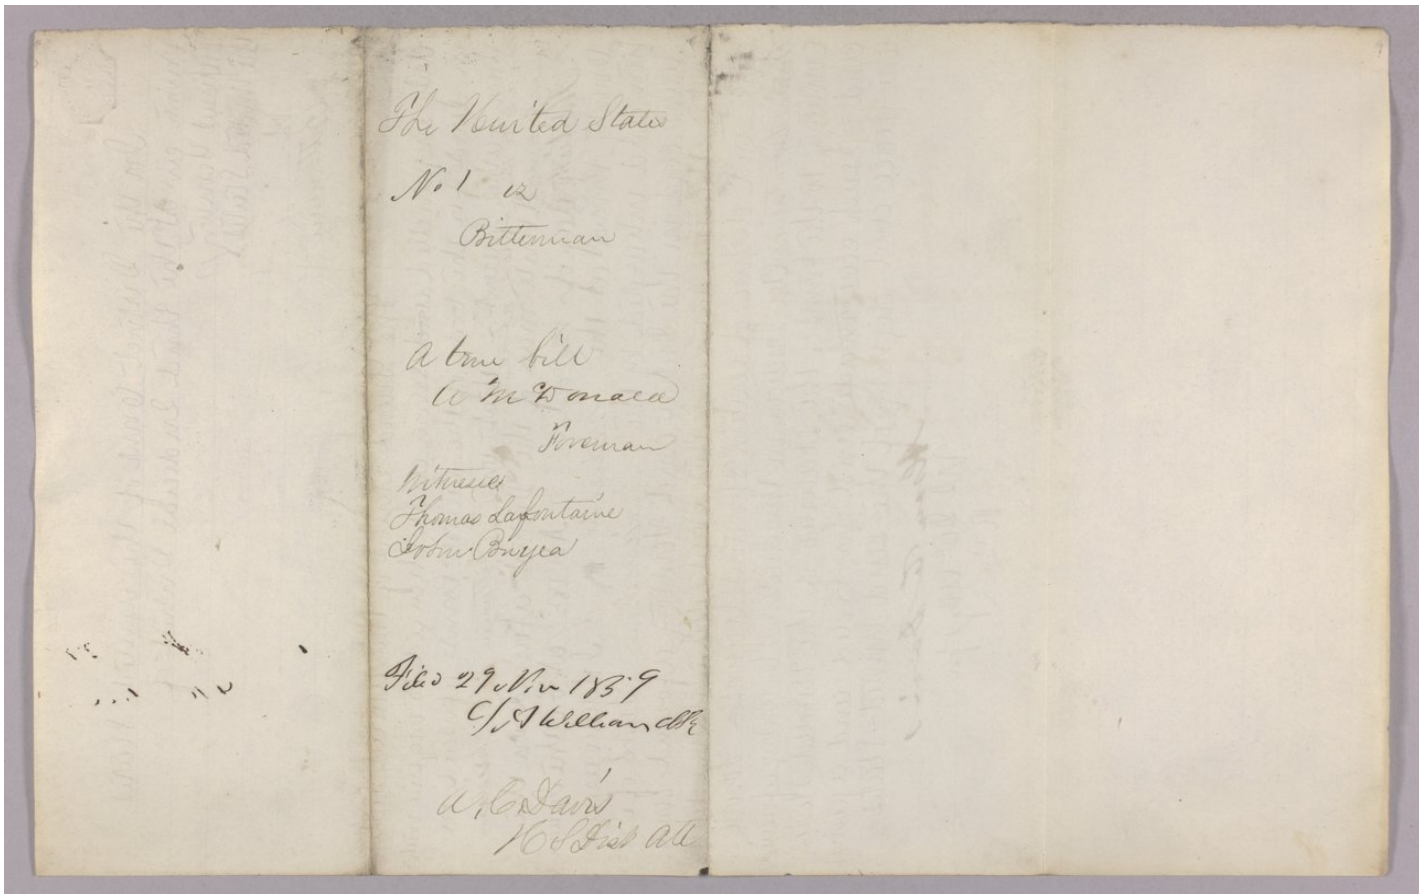 The United States
No 1 vs
Bitterman
A true bill
A McDonald
Foreman
Witnesses
Thomas Lafontaine
John Buyea
Filed 29 Nov 1859
Williams Clk
A. C. Davis
U S Dist Att